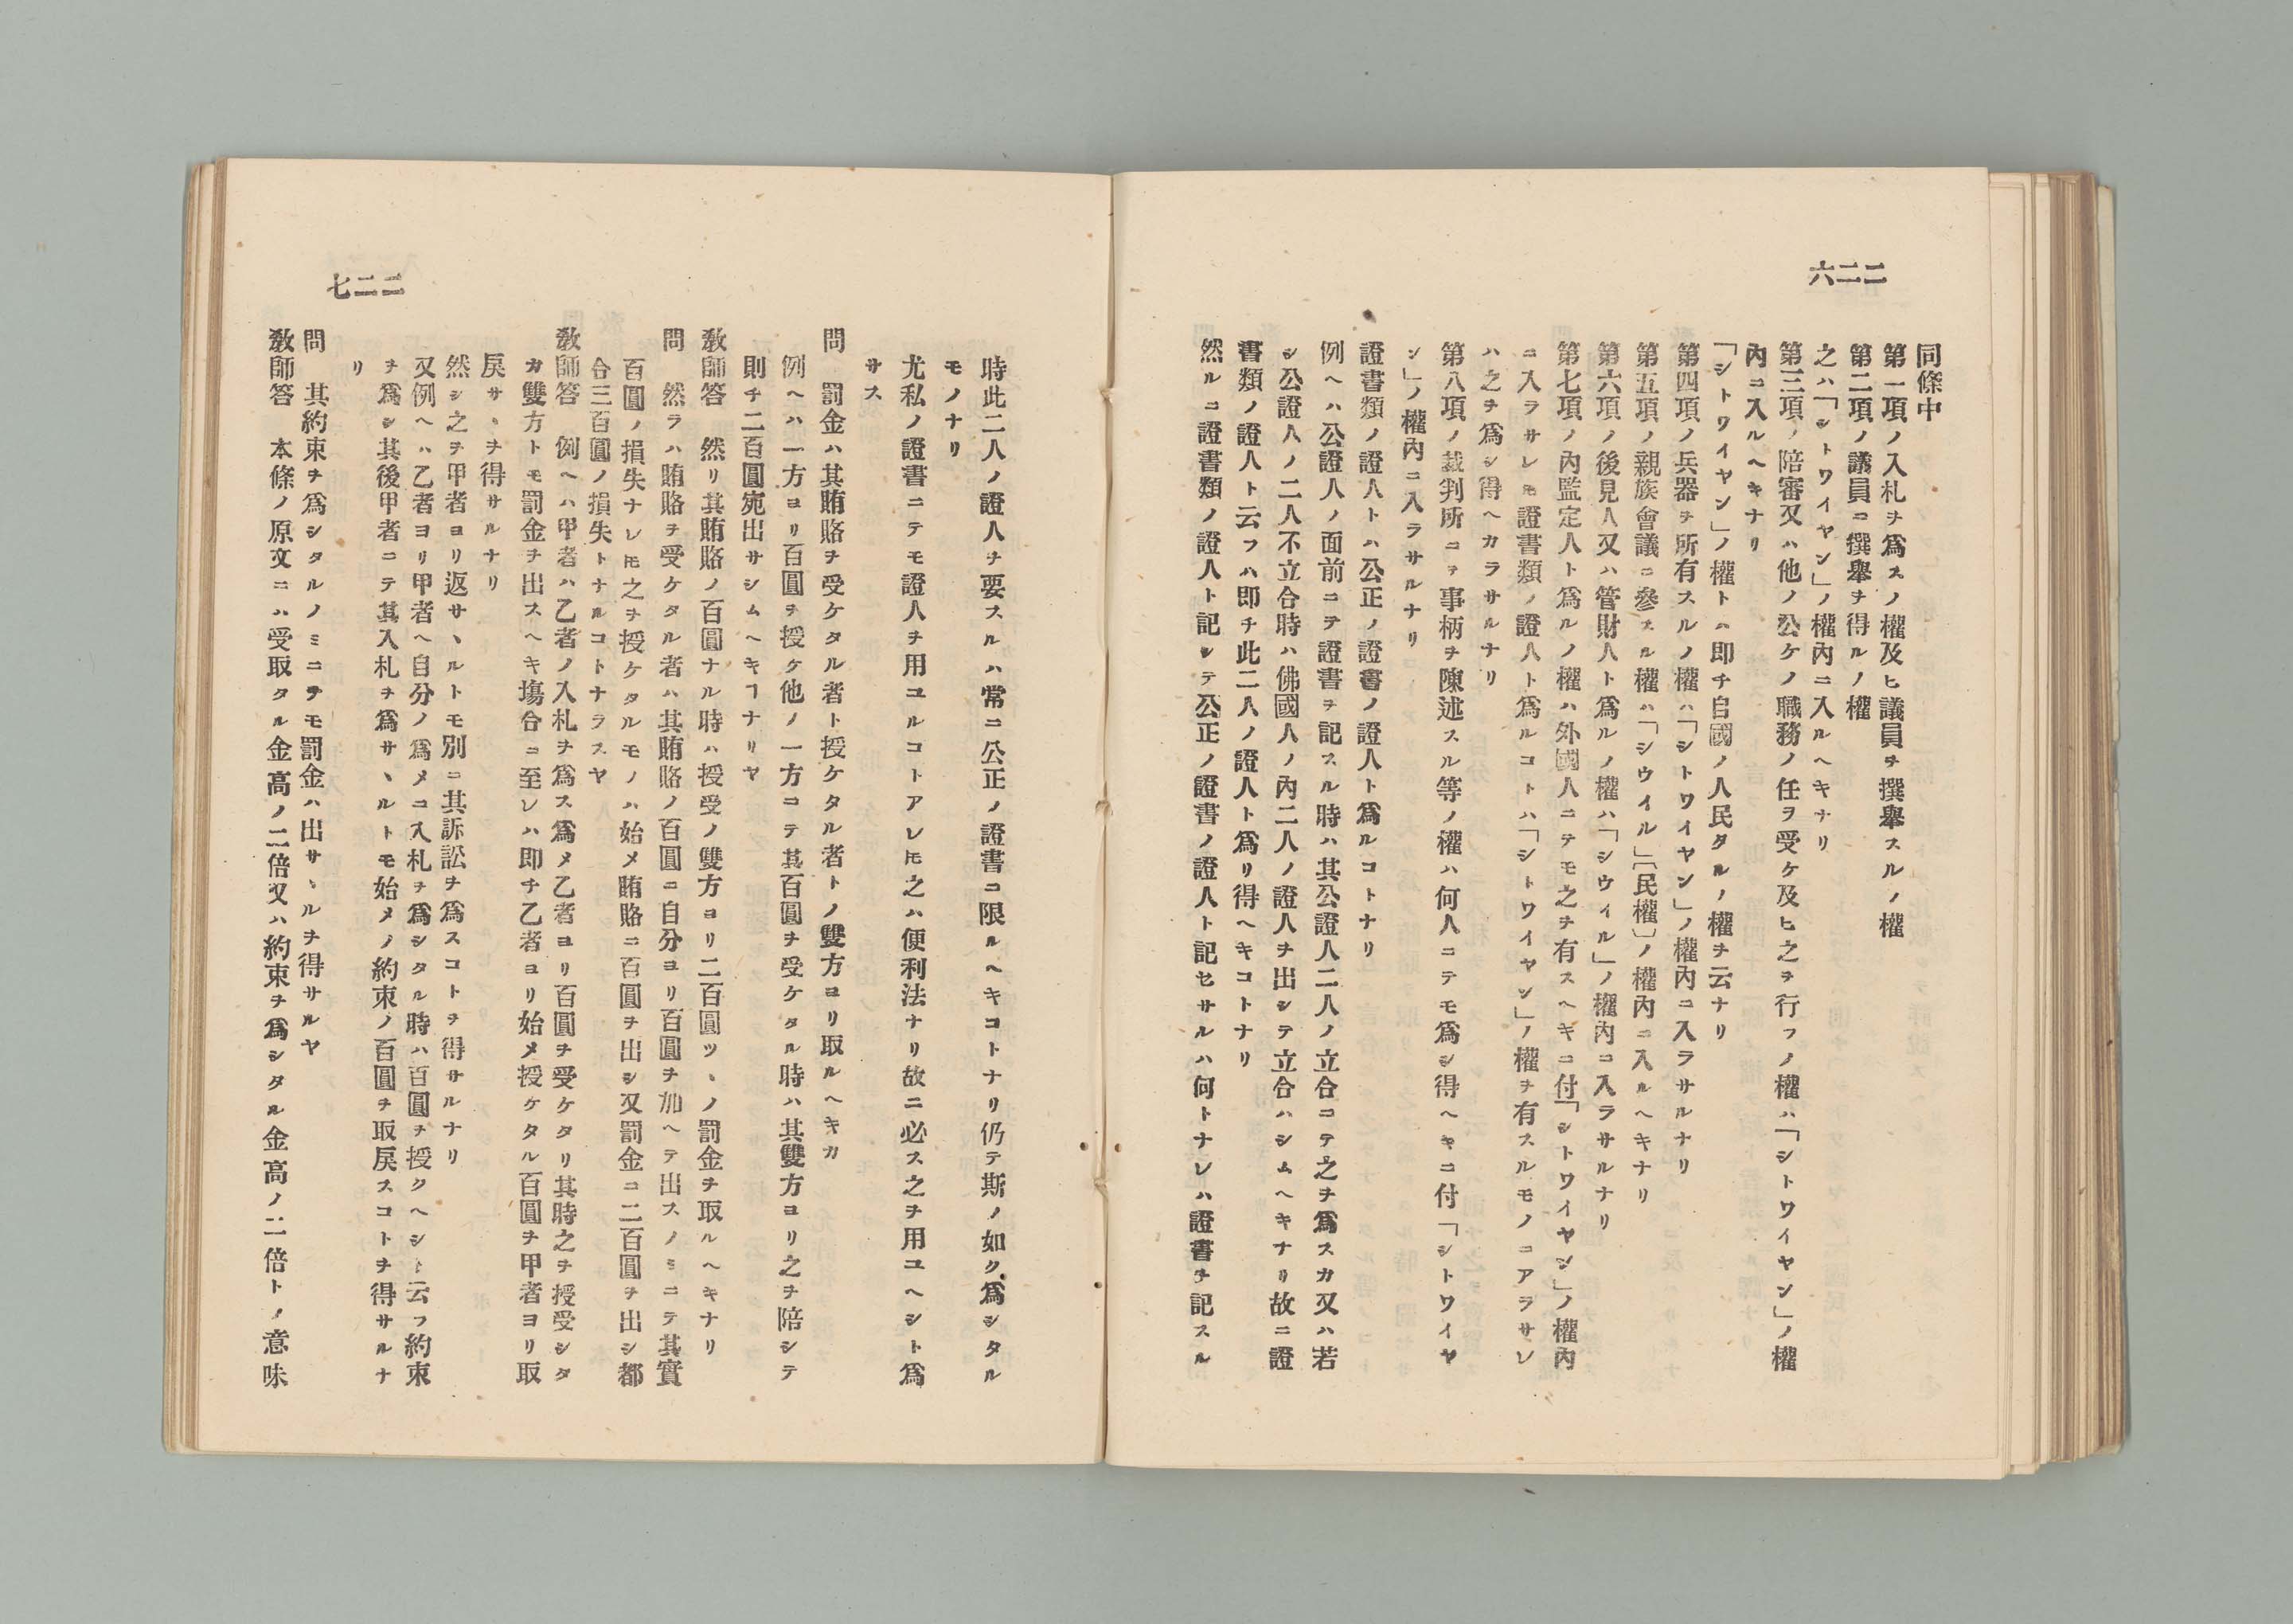 二二六
同條中
第一項ノ入札ヲ爲スノ權及ヒ議員ヲ撰擧スルノ權
第二項ノ議員ニ撰擧ヲ得ルノ權
之ハ「シトワイヤン」ノ權內ニ入ルヘキナリ
第三項ノ陪審又ハ他ノ公ケノ職務ノ任ヲ受ケ及ヒ之ヲ行フノ權ハ「シトワイヤン」ノ權
內ニ入ルヘキナリ
「シトワイヤン」ノ權トハ即チ自國ノ人民タルノ權ヲ云ナリ
第四項ノ兵器ヲ所有スルノ權ハ「シトワイヤン」ノ權內ニ入ラサルナリ
第五項ノ親族會議ニ參スル權ハ「シウイル」〔民權〕ノ權內ニ入ルヘキナリ
第六項ノ後見人又ハ管財人ト爲ルノ權ハ「シウイル」ノ權內ニ入ラサルナリ
第七項ノ內監定人ト爲ルノ權ハ外國人ニテモ之ヲ有スヘキニ付「シトワイヤン」ノ權內
ニ入ラサレ𪜈證書類ノ證人ト爲ルコトハ「シトワイヤン」ノ權ヲ有スルモノニアラサレ
ハ之ヲ爲シ得ヘカラサルナリ
第八項ノ裁判所ニテ事柄ヲ陳述スル等ノ權ハ何人ニテモ爲シ得ヘキニ付「シトワイヤ
ン」ノ權內ニ入ラサルナリ
證書類ノ證人トハ公正ノ證書ノ證人ト爲ルコトナリ
例ヘハ公證人ノ面前ニテ證書ヲ記スル時ハ其公證人二人ノ立合ニテ之ヲ爲スカ又ハ若
シ公證人ノ二人不立合時ハ佛國人ノ內二人ノ證人ヲ出シテ立合ハシムヘキナリ故ニ證
書類ノ證人ト云フハ即チ此二人ノ證人ト爲リ得ヘキコトナリ
然ルニ證書類ノ證人ト記シテ公正ノ證書ノ證人ト記セサルハ何トナレハ證書ヲ記スル
二二七
時此二人ノ證人ヲ要スルハ常ニ公正ノ證書ニ限ルヘキコトナリ仍テ斯ノ如ク爲シタル
モノナリ
尤私ノ證書ニテモ證人ヲ用ユルコトアレ𪜈之ハ便利法ナリ故ニ必ス之ヲ用ユヘシト爲
サス
問　罰金ハ其賄賂ヲ受ケタル者ト授ケタル者トノ雙方ヨリ取ルヘキカ
例ヘハ一方ヨリ百圓ヲ授ケ他ノ一方ニテ其百圓ヲ受ケタル時ハ其雙方ヨリ之ヲ陪シテ
則チ二百圓宛出サシムヘキヿナリヤ
敎師答　然リ其賄賂ノ百圓ナル時ハ授受ノ雙方ヨリ二百圓ツヽノ罰金ヲ取ルヘキナリ
問　然ラハ賄賂ヲ受ケタル者ハ其賄賂ノ百圓ニ自分ヨリ百圓ヲ加ヘテ出スノミニテ其實
百圓ノ損失ナレ𪜈之ヲ授ケタルモノハ始メ賄賂ニ百圓ヲ出シ又罰金ニ二百圓ヲ出シ都
合三百圓ノ損失トナルコトナラスヤ
敎師答　例ヘハ甲者ハ乙者ノ入札ヲ爲ス爲メ乙者ヨリ百圓ヲ受ケタリ其時之ヲ授受シタ
カ雙方トモ罰金ヲ出スヘキ塲合ニ至レハ即チ乙者ヨリ始メ授ケタル百圓ヲ甲者ヨリ取
戾サヽヲ得サルナリ
然シ之ヲ甲者ヨリ返サヽルトモ別ニ其訴訟ヲ爲スコトヲ得サルナリ
又例ヘハ乙者ヨリ甲者ヘ自分ノ爲メニ入札ヲ爲シタル時ハ百圓ヲ授クヘシト云フ約束
ヲ爲シ其後甲者ニテ其入札ヲ爲サヽルトモ始メノ約束ノ百圓ヲ取戾スコトヲ得サルナ
リ
問　其約束ヲ爲シタルノミニテモ罰金ハ出サヽルヲ得サルヤ
敎師答　本條ノ原文ニハ受取タル金高ノ二倍又ハ約束ヲ爲シタル金高ノ二倍トノ意味